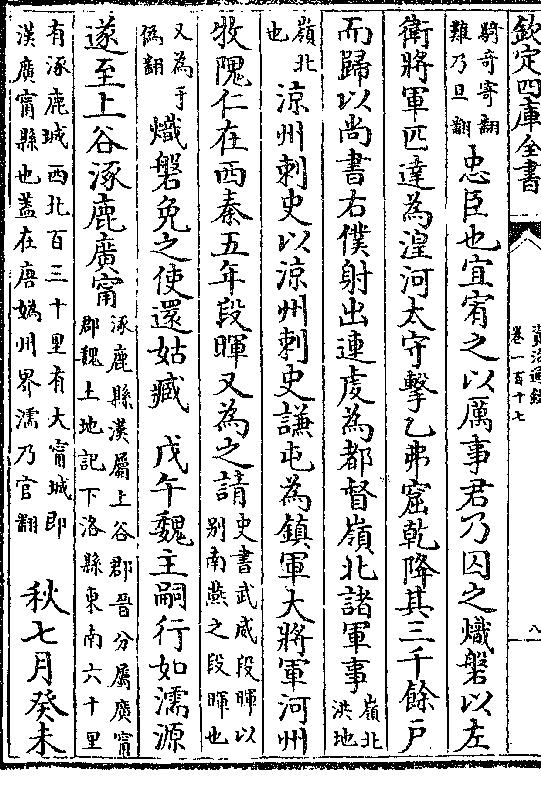 欽定四庫全書
資治通鑑
卷一百十七
八
騎奇寄翻
難乃旦翻
忠臣也宜宥之以厲事君乃囚之熾磐以左
衛將軍匹達為湟河太守擊乙弗窟乾降其三千餘户
而歸以尚書右僕射出連虔為都督嶺北諸軍事
嶺北
洪地
嶺北
也
涼州刺史以涼州刺史謙屯為鎮軍大將軍河州
牧隗仁在西秦五年段暉又為之請
史書武威段暉以
别南燕之段暉也
又為于
偽翻
熾磐免之使還姑臧 戊午魏主嗣行如濡源
遂至上谷涿鹿廣甯
涿鹿縣漢屬上谷郡晉分屬廣甯
郡魏土地記下洛縣東南六十里
有涿鹿城西北百三十里有大甯城即
漢廣甯縣也葢在唐媯州界濡乃官翻
秋七月癸未